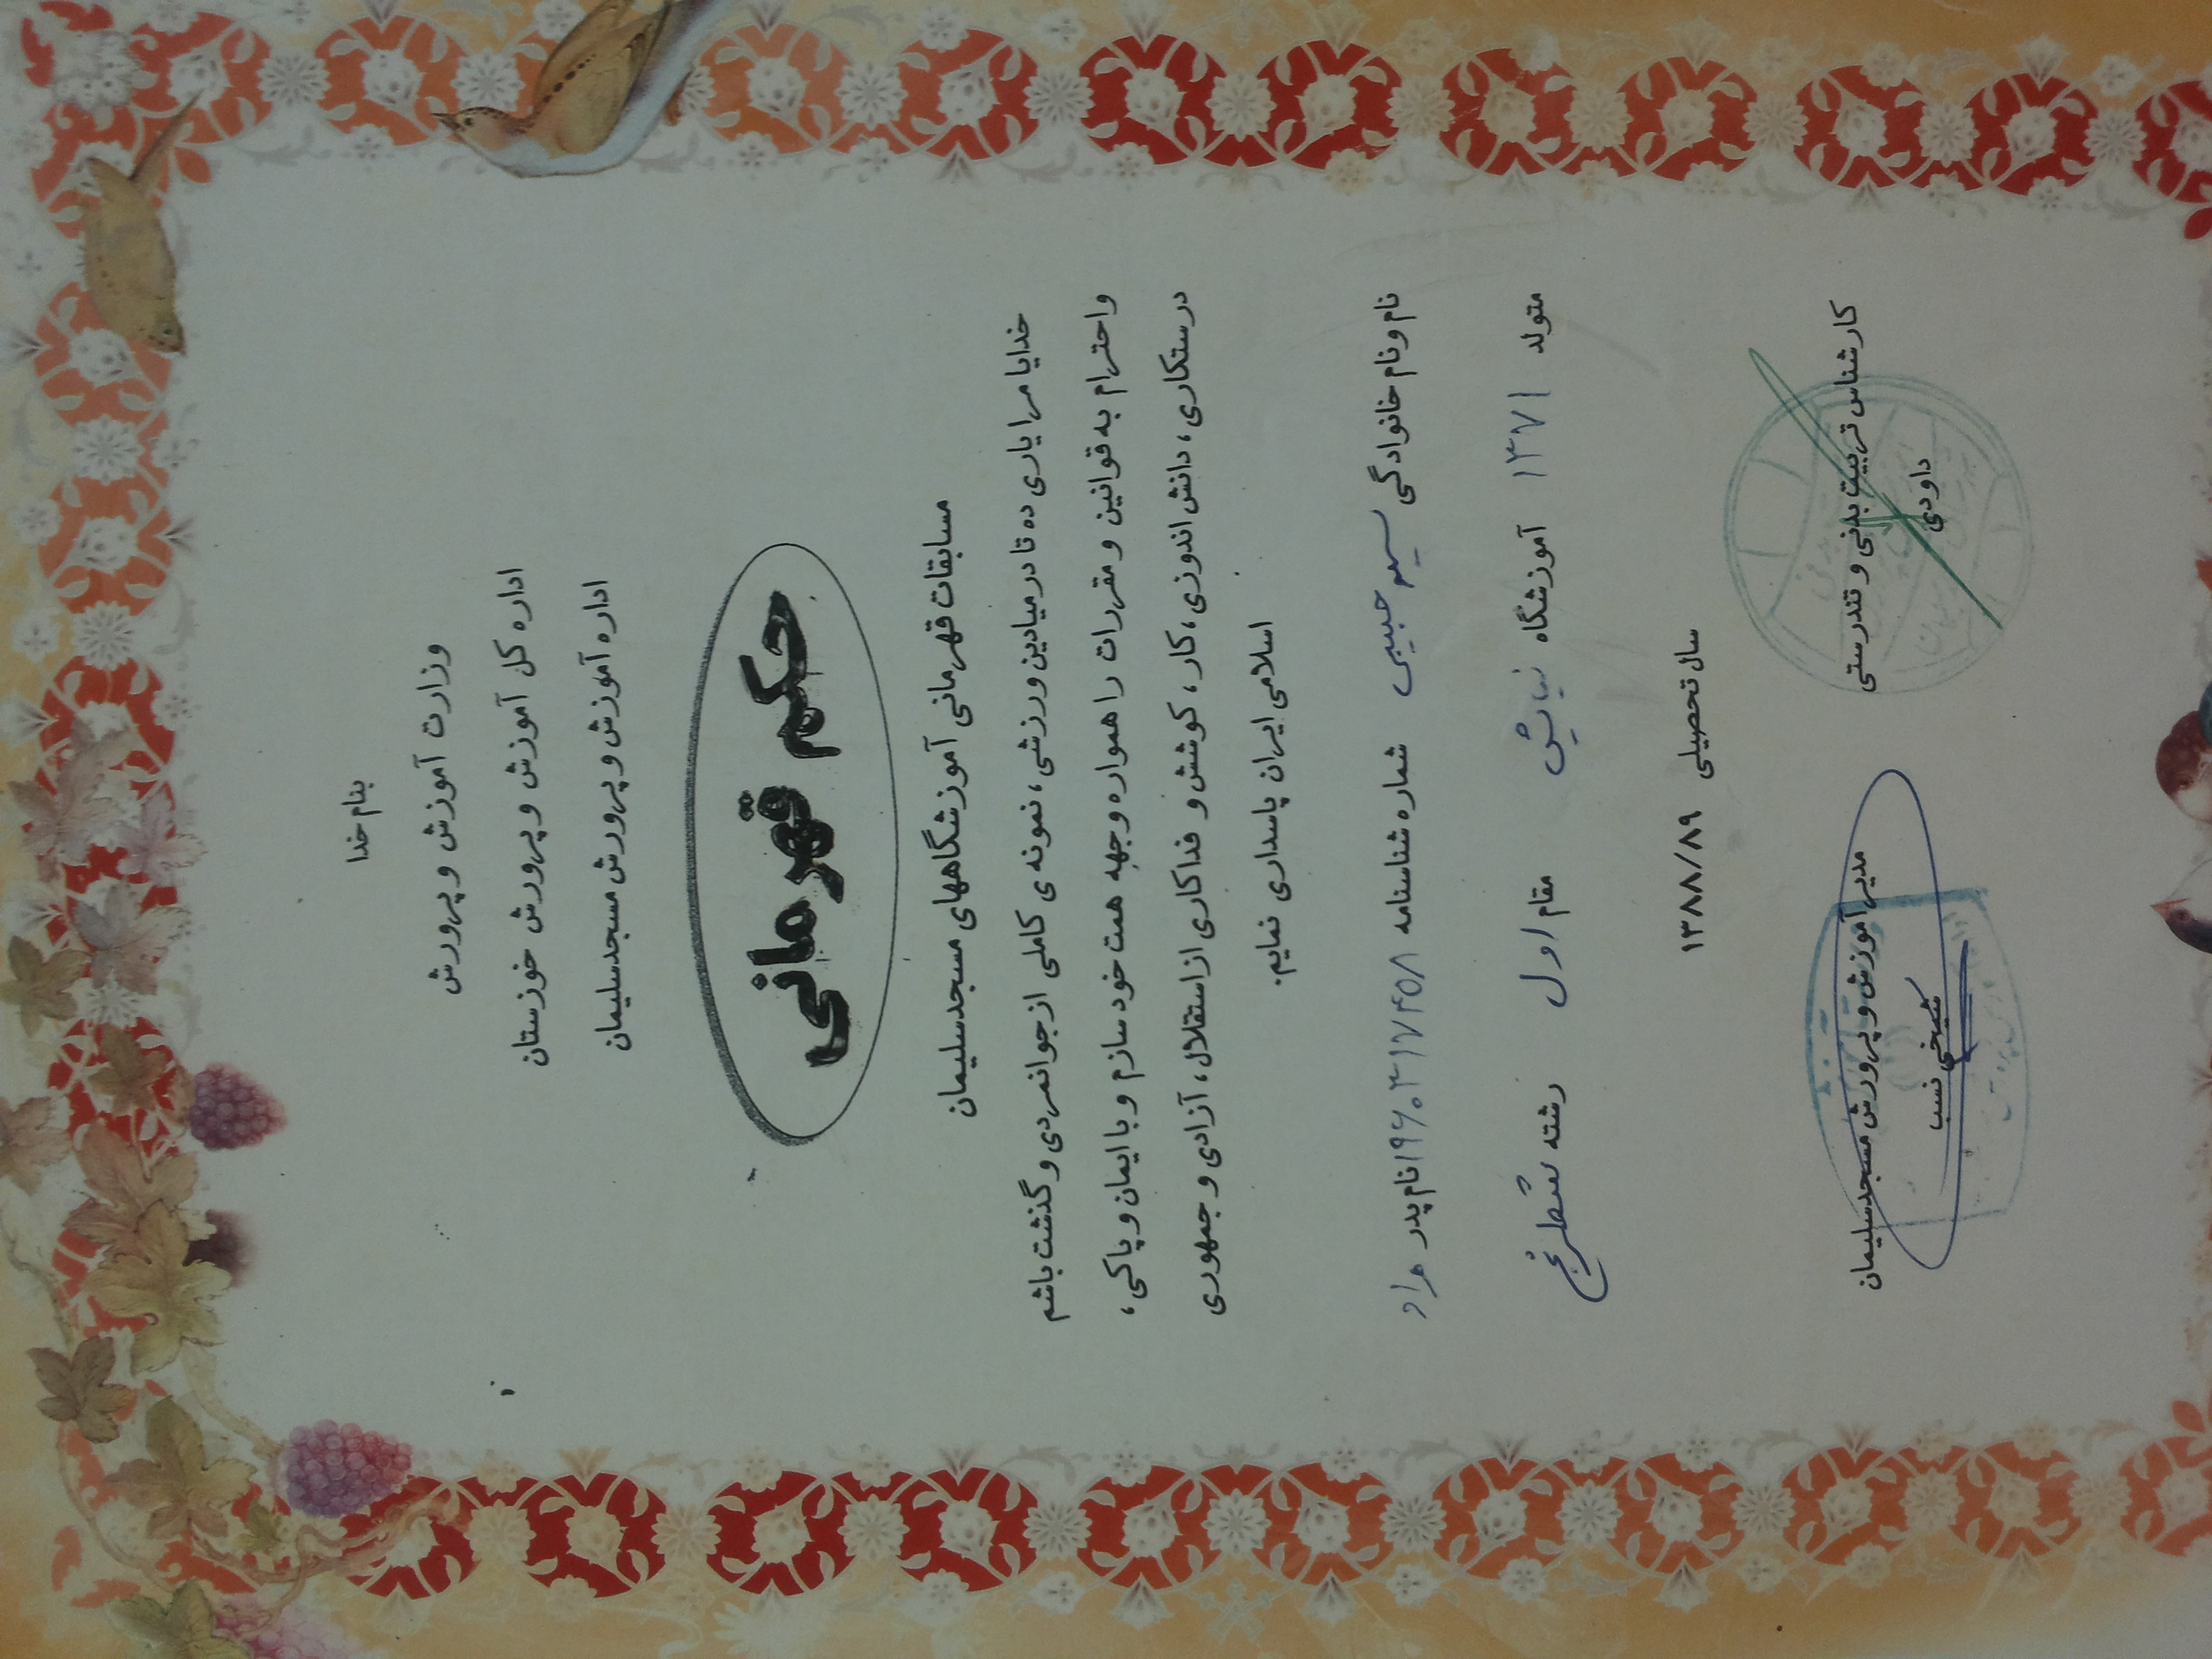 بنام خدا
وزارت آموزش و پرورش
اداره کل آموزش و پرورش خوزستان
اداره آموزش و پرورش مسجدسلیمان
حکم قهرمانی
مسابقات قهرمانی آموزشگاههای مسجدسلیمان
خدایا مرا یاری ده تا در میادین ورزشی، نمونه ی کاملی از جوانمردی و گذشت باشم
واحترام به قوانین و مقررات را همواره وجهه همت خود سازم و با ایمان و پاکی،
درستکاری، دانش اندوزی، کار، کوشش و فداکاری از استقلال، آزادی و جمهوری
اسلامی ایران پاسداری نمایم.
نام و نام خانوادگی حبیبی شماره شناسنامه ۱۹۶۰۳۱۷۴۵۸ نام پدر مراد
متولد ۱۳۷۱ آموزشگاه نیایش مقام اول رشته شطرنج
سال تحصیلی ۱۳۸۸/۸۹
کارشناس تربیت بدنی و تندرستی
داودی
مدیر آموزش و پرورش مسجدسلیمان
شیخی نسب